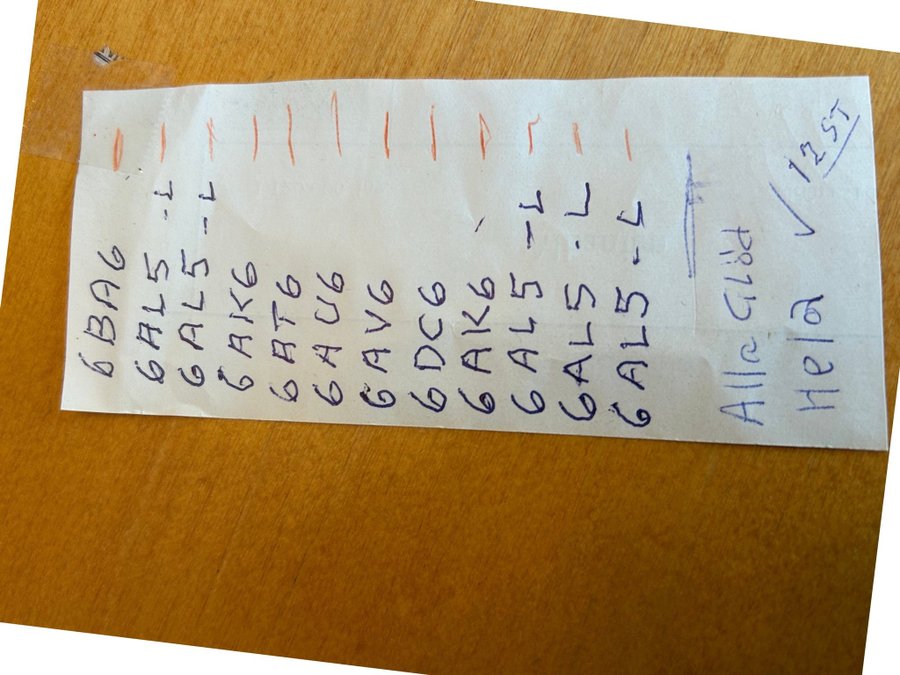 6BA6
6AL5 -L
6AL5 -L
6AK6
6AT6
6AU6
6AV6
6DC6
6AK6
6AL5 -L
6AL5 -L
6AL5 -L
Alla Glöd
Hela ✓ 12 ST